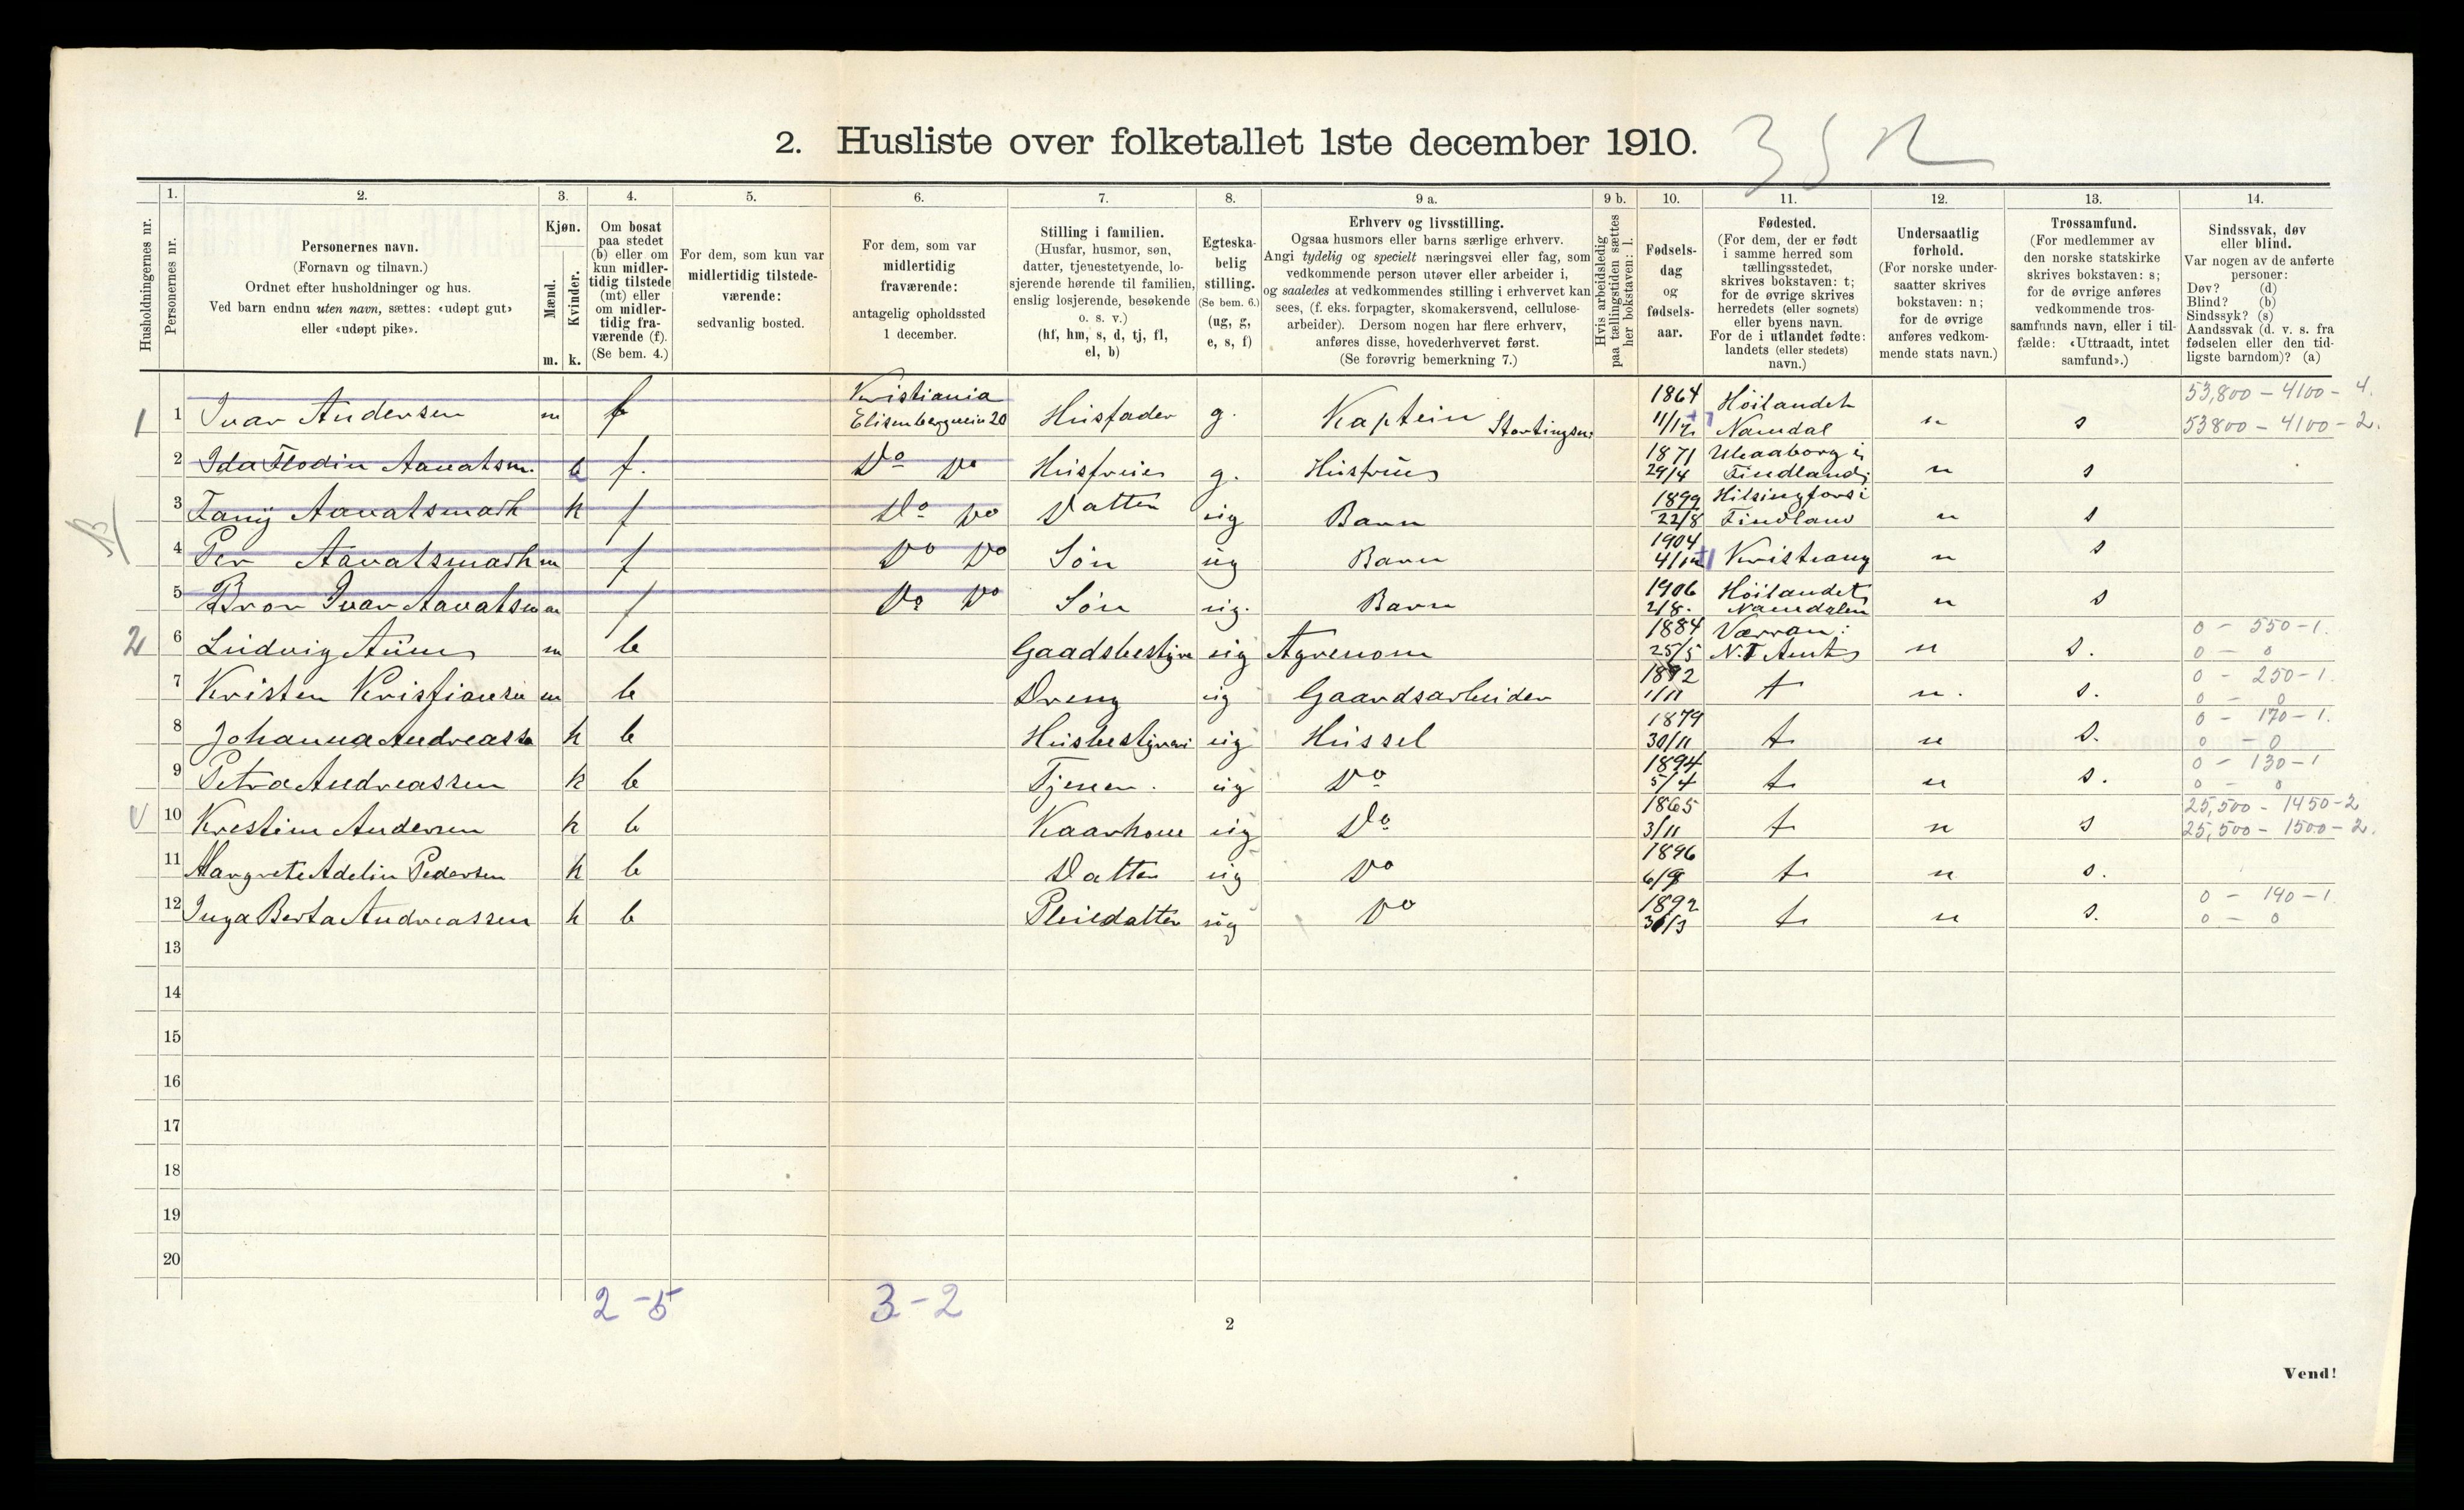 2. Husliste over folketallet 1ste december 1910.
Husholdningernes nr.
1. Personernes nr.
2. Personernes navn.
(Fornavn og tilnavn.)
Ordnet efter husholdninger og hus.
Ved barn endnu uten navn, sættes: «udøpt gut»
eller «udøpt pike».
3. Kjøn.
Mænd. m.
Kvinder. k.
4. Om bosat
paa stedet
(b) eller om
kun midler-
tidig tilstede
(mt) eller
om midler-
tidig fra-
værende (f).
(Se bem. 4.)
5. For dem, som kun var
midlertidig tilstede-
værende:
sedvanlig bosted.
6. For dem, som var
midlertidig
fraværende:
antagelig opholdssted
1 december.
7. Stilling i familien.
(Husfar, husmor, søn,
datter, tjenestetyende, lo-
sjerende hørende til familien,
enslig losjerende, besøkende
o. s. v.)
(hf, hm, s, d, tj, fl,
el, b)
8. Egteska-
belig
stilling.
(Se bem. 6.)
(ug, g,
e, s, f)
9 a. Erhverv og livsstilling.
Ogsaa husmors eller barns særlige erhverv.
Angi tydelig og specielt næringsvei eller fag, som
vedkommende person utøver eller arbeider i,
og saaledes at vedkommendes stilling i erhvervet kan
sees, (f. eks. forpagter, skomakersvend, cellulose-
arbeider). Dersom nogen har flere erhverv,
anføres disse, hovederhvervet først.
(Se forøvrig bemerkning 7.)
9 b. Hvis arbeidsledig
paa tællingstiden sættes
her bokstaven: l.
10. Fødsels-
dag
og
fødsels-
aar.
11. Fødested.
(For dem, der er født
i samme herred som
tællingsstedet,
skrives bokstaven: t;
for de øvrige skrives
herredets (eller sognets)
eller byens navn.
For de i utlandet fødte:
landets (eller stedets)
navn.)
12. Undersaatlig
forhold.
(For norske under-
saatter skrives
bokstaven: n;
for de øvrige
anføres vedkom-
mende stats navn.)
13. Trossamfund.
(For medlemmer av
den norske statskirke
skrives bokstaven: s;
for de øvrige anføres
vedkommende tros-
samfunds navn, eller i til-
fælde: «Uttraadt, intet
samfund».)
14. Sindssvak, døv
eller blind.
Var nogen av de anførte
personer:
Døv? (d)
Blind? (b)
Sindssyk? (s)
Aandssvak (d. v. s. fra
fødselen eller den tid-
ligste barndom)? (a)
1 1 Ivar Andersen m f Kristiania Elisenbergveien 20 Husfader g. Kaptein Stortingsm. 1864 11/12 Höilandet Namdal n s 53,800 - 4100 - 4.
53800 - 4100 - 2.
2 Ida Flodin Aavatsm. k f. Do Do Husfrue g. Husfrue 1871 29/4 Uleaaborg i Findland n s
3 Fany Aavatsmark k f Do Do Datter ug Barn 1899 22/8 Hilsingfors i Findland n s
4 Per Aavatsmark m f Do Do Sön ug Barn 1904 4/12 n s
5 Bror Ivar Aavatsm m f Do Do Sön ug. Barn 1906 2/8. Höilandet Namdalen n s
2 6 Ludvig Aune m b Gaadsbestyre ug Agronom 1884 25/5 Værran: N.T. Amt n s. 0 - 550 - 1.
0 - 0
7 Kristen Kristiansen m b Dreng ug Gaardsarbeider 1892 1/11 t n. s. 0 - 250 - 1.
0 - 0
8 Johanna Andreassen k b Husbestyreri ug Hussel 1879 30/11 t. n s. 0 - 170 - 1.
0 - 0
9 Petra Andreassen k b Tjener. ug Do 1894 5/4 t. n s. 0 - 130 - 1
0 - 0
10 Krestine Andersen k b Kaarkone ug Do 1865 3/11 t n s 25,500 - 1450 - 2
25,500 - 1500 - 2.
11 Margrete Adelin Pedersen k b Datter ug Do 1896 t. n s.
12 Inga Berta Andreassen k b Pleiedatter ug Do 1892 t. n s. 0 - 190 - 1
0 - 0
13
14
15
16
17
18
19
20
2 - 5 3 - 2
2
Vend!